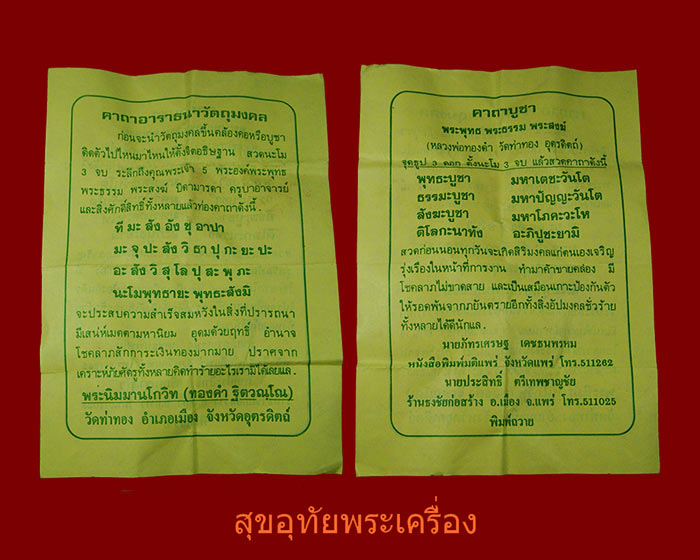 คาถาอาราธนาวัตถุมงคล
ก่อนจะนำวัตถุมงคลขึ้นคล้องคอหรือบูชา
ติดตัวไปไหนมาไหนให้ตั้งจิตอธิษฐาน สวดนะโม
3 จบ ระลึกถึงคุณพระเจ้า 5 พระองค์พระพุทธ
พระธรรม พระสงฆ์ บิดามารดา ครูบาอาจารย์
และสิ่งศักดิ์สิทธิ์ทั้งหลายแล้วท่องคาถาดังนี้.
ที มะ สัง อัง ขุ อาปา
มะ จุ ปะ สัง วิ ธา ปุ กะ ยะ ปะ
อะ สัง วิ สุ โล ปุ สะ พุ ภะ
นะโมพุทธายะ พุทธะสังมิ
จะประสบความสำเร็จสมหวังในสิ่งที่ปรารถนา
มีเสน่ห์เมตตามหานิยม อุดมด้วยฤทธิ์ อำนาจ
โชคลาภสักการะเงินทองมากมาย ปราศจาก
เคราะห์ภัยศัตรูทั้งหลายคิดทำร้ายอะไรเรามิได้เลยแล.
พระนิมมานโกวิท (ทองดำ ฐิตวณฺโณ)
วัดท่าทอง อำเภอเมือง จังหวัดอุตรดิตถ์
คาถาบูชา
พระพุทธ พระธรรม พระสงฆ์
(หลวงพ่อทองดำ วัดท่าทอง อุตรดิตถ์)
จุดธูป 3 ดอก ตั้งนะโม 3 จบ แล้วสวดคาถาดังนี้
พุทธะบูชา มหาเตชะวันโต
ธรรมะบูชา มหาปัญญะวันโต
สังฆะบูชา มหาโภคะวะโห
ติโลกะนาทัง อะภิปูชะยามิ
สวดก่อนนอนทุกวันจะเกิดสิริมงคลแก่ตนเองเจริญ
รุ่งเรืองในหน้าที่การงาน ทำมาค้าขายคล่อง มี
โชคลาภไม่ขาดสาย และเป็นเสมือนเกาะป้องกันตัว
ให้รอดพ้นจากภยันตรายอีกทั้งสิ่งอัปมงคลชั่วร้าย
ทั้งหลายได้ดีนักแล.
นายภัทรเศรษฐ เดชธนพรหม
หนังสือพิมพ์มติแพร่ จังหวัดแพร่ โทร.511262
นายประสิทธิ์ ตรีเทพชาญชัย
ร้านธงชัยก่อสร้าง อ.เมือง จ.แพร่ โทร.511025
พิมพ์ถวาย
สุขอุทัยพระเครื่อง